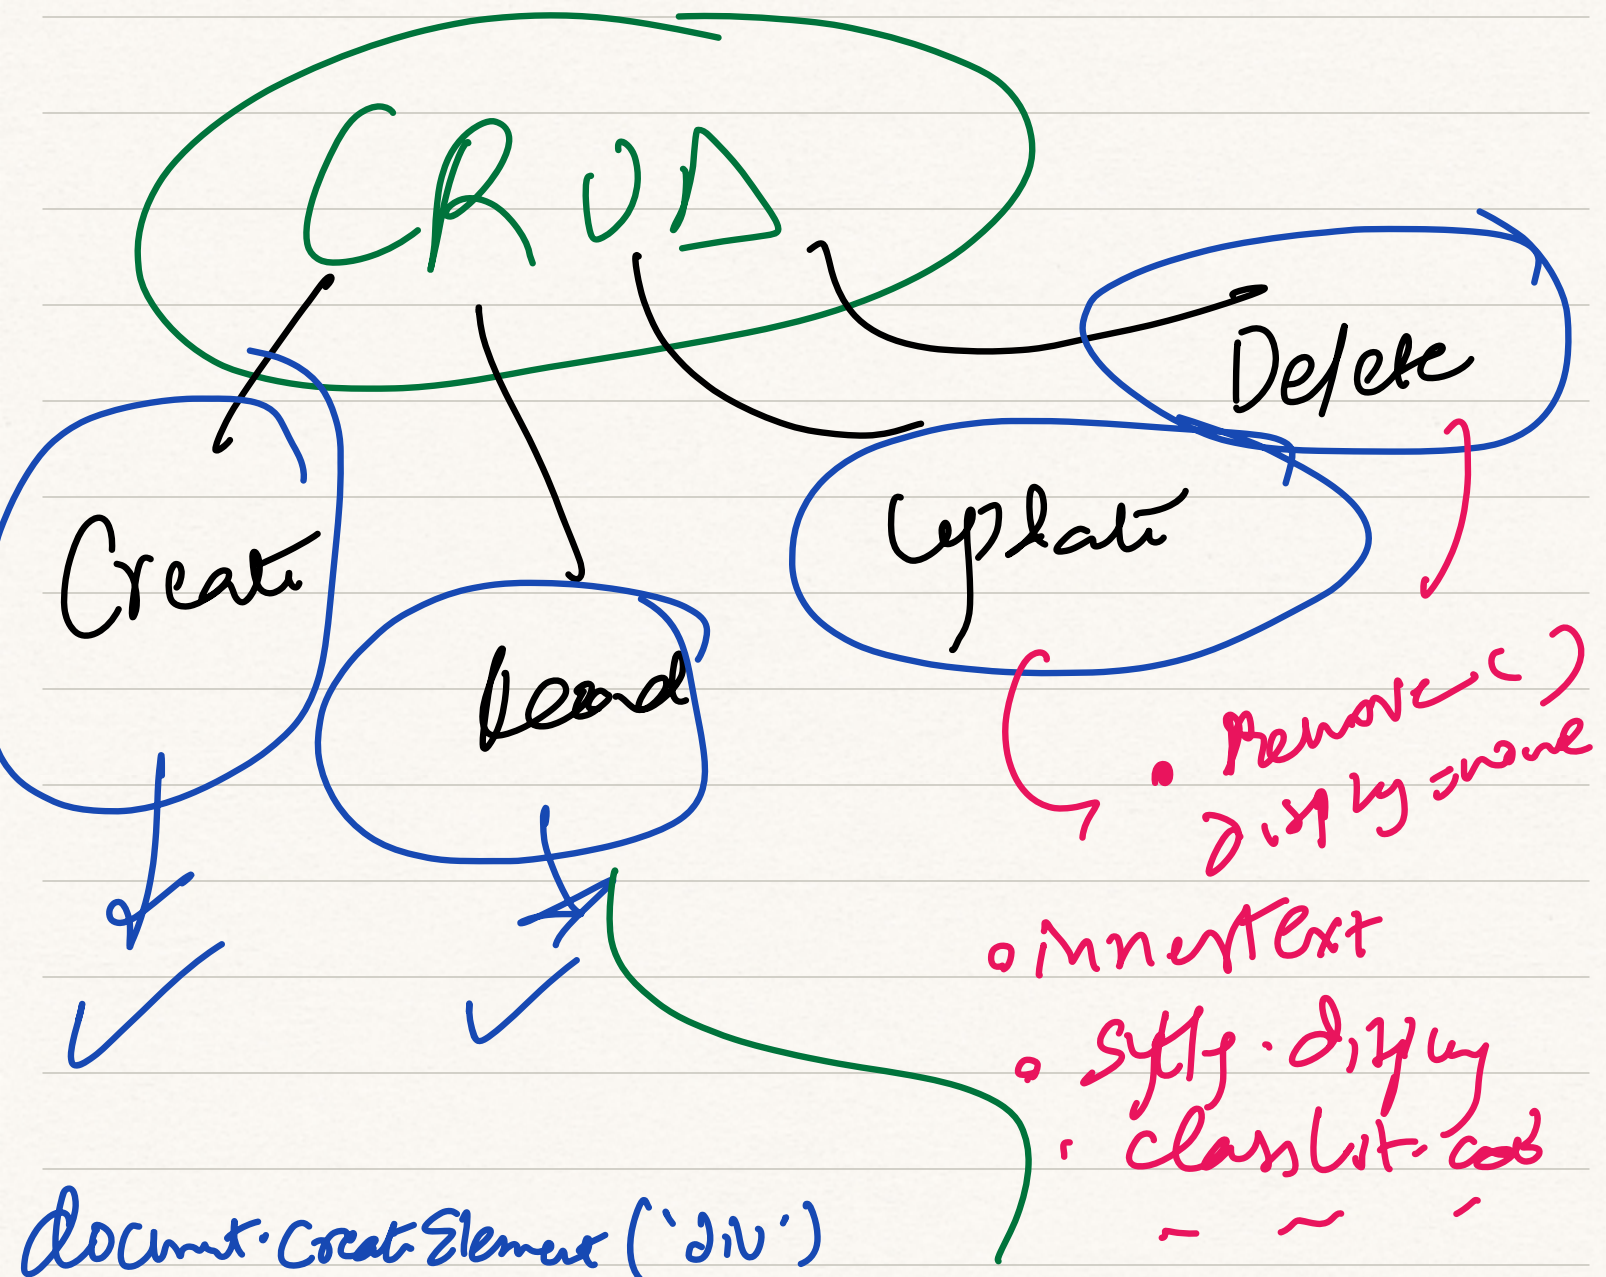 CRUD
Delete
Update
Create
Read
• Remove()
Display = none
o innerText
o style.display
• classList.add
document.createElement('div')